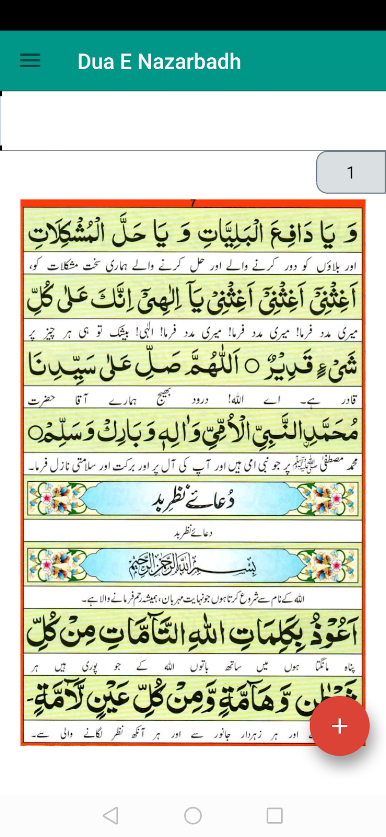 Dua E Nazarbadh
1
7
وَ يَا دَافِعَ الْبَلِيَّاتِ وَ يَا حَلَّ الْمُشْكِلَاتِ
اور بلاؤں کو دور کرنے والے اور حل کرنے والے ہماری سخت مشکلات کو،
اَغِثْنِیْ اَغِثْنِیْ اَغِثْنِیْ يَآ اِلٰهِیْ اِنَّكَ عَلٰى كُلِّ
میری مدد فرما! میری مدد فرما! میری مدد فرما! الٰہی! بیشک تو ہی ہر چیز پر
شَیْءٍ قَدِيْرٌ ○ اَللّٰهُمَّ صَلِّ عَلٰى سَيِّدِنَا
قادر ہے۔ اے اللہ! درود بھیج ہمارے آقا حضرت
مُحَمَّدِ النَّبِيِّ الْاُمِّيِّ وَاٰلِهٖ وَبَارِكْ وَسَلِّمْ○
محمد مصطفیٰ ﷺ پر جو نبی امی ہیں اور آپ کی آل پر اور برکت اور سلامتی نازل فرما۔
دُعائے نظرِبد
دعائے نظربد
بِسْمِ اللهِ الرَّحْمٰنِ الرَّحِيْمِ
اللہ کے نام سے شروع کرتا ہوں جو نہایت مہربان، ہمیشہ رحم فرمانے والا ہے۔
اَعُوْذُ بِكَلِمَاتِ اللهِ التَّآمَّاتِ مِنْ كُلِّ
پناہ مانگتا ہوں میں ساتھ باتوں اللہ کے جو پوری ہیں ہر
شَيْطٰنٍ وَّهَآمَّةٍ وَّمِنْ كُلِّ عَيْنٍ لَّآمَّةٍ۔
اور ہر زہردار جانور سے اور ہر آنکھ نظر لگانے والی سے۔
+